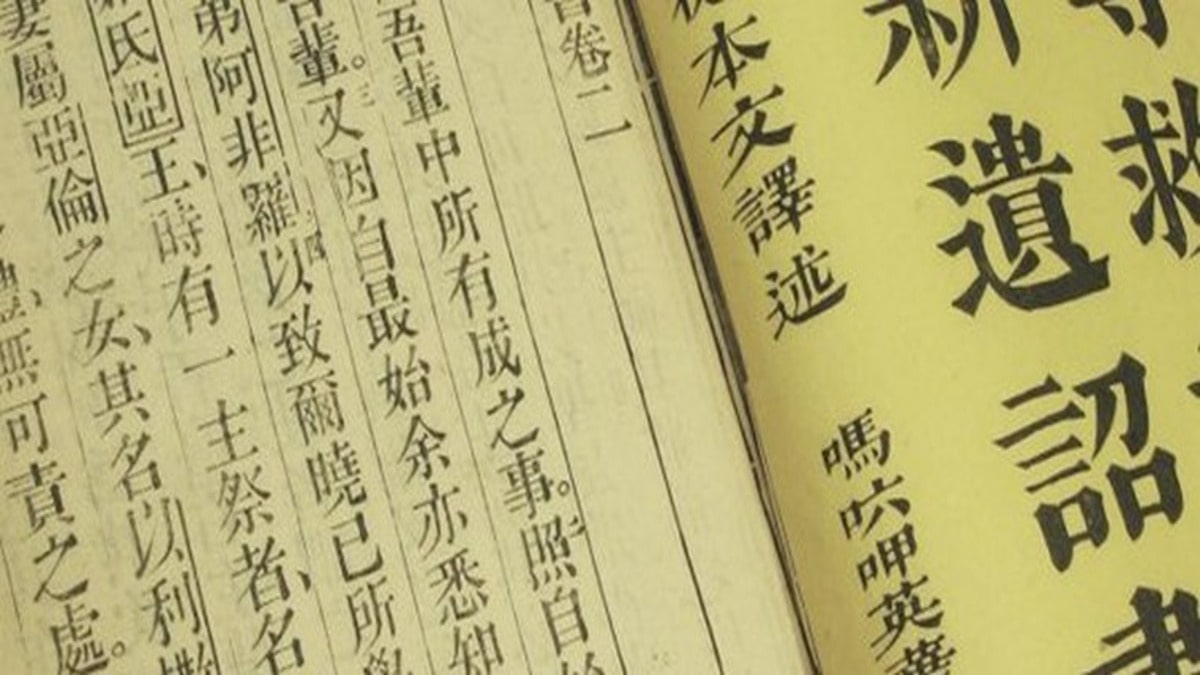 救
新遺詔書
本文譯述
嗎呷英華
卷三
吾輩中所有成之事。照自
吾輩。又因自最始余亦悉知
弟阿非羅以致爾曉已所學
氏亞王、時有一主祭者、名
妻屬亞倫之女、其名以利
無可責之處。